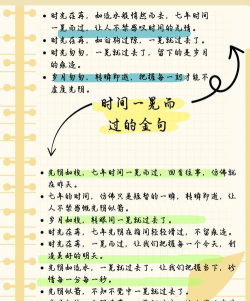 时光荏苒，如流水般悄然而去，七年时间
一晃而过，让人不禁感叹时间的无情。
时光荏苒，如白驹过隙，一晃就过去了。
时光匆匆，一晃就过去了，留下的是岁月
的痕迹。
岁月匆匆，转瞬即逝，把握每一刻才能不
虚度光阴。
时间一晃而
过的金句
光阴如梭，七年时间一晃而过，回首往事，仿佛就
在昨天。
七年的时间，仿佛只是短暂的一瞬，转瞬即逝，让
人不禁感慨光阴似箭。
岁月如梭，转眼间一晃就过去了。
时光荏苒，七年光阴在指间轻轻滑过，不留痕迹。
时光荏苒，一晃而过，让我们把握每一个今天，创
造美好的明天。
光阴如流水，一晃就过去了，让我们把握当下，珍
惜每一分每一秒。
光阴似箭，不知不觉中一晃就过去了。